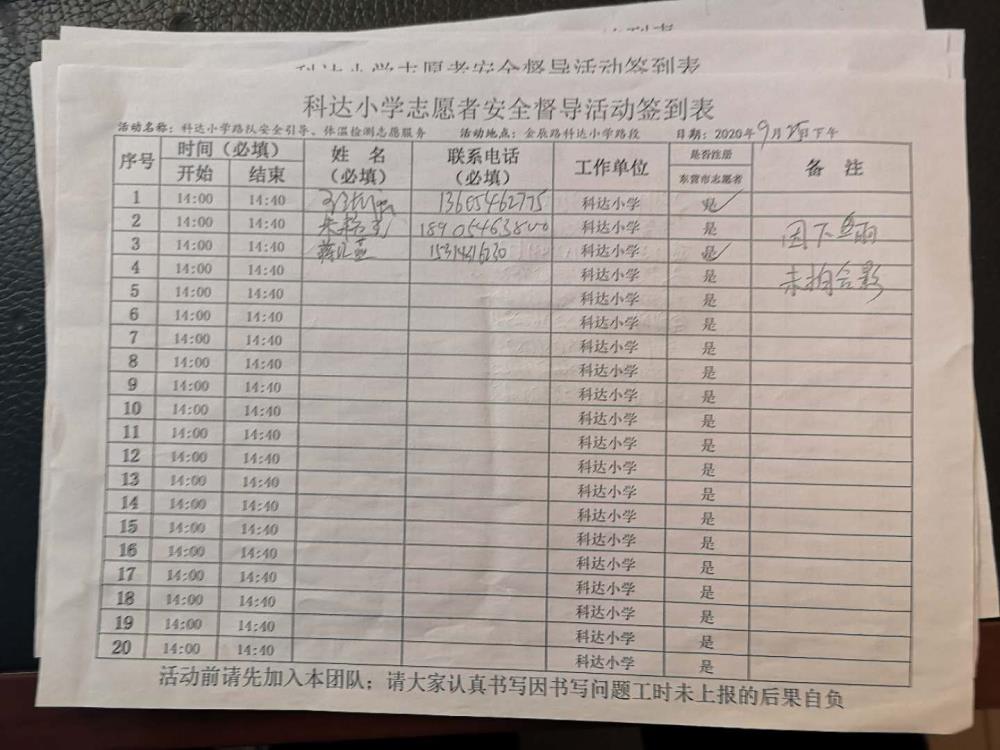 科达小学志愿者安全督导活动签到表
科达小学志愿者安全督导活动签到表
活动名称：科达小学路队安全引导、体温检测志愿服务 活动地点：金辰路科达小学路段 日期：2020年9月25日下午
序号 时间（必填） 姓 名（必填） 联系电话（必填） 工作单位 是否注册东营市志愿者 备 注
开始 结束
1 14:00 14:40 13655462775 科达小学 是✓
2 14:00 14:40 18905463800 科达小学 是 因下雨
3 14:00 14:40 科达小学 是✓
4 14:00 14:40 科达小学 是 未拍合影
5 14:00 14:40 科达小学 是
6 14:00 14:40 科达小学 是
7 14:00 14:40 科达小学 是
8 14:00 14:40 科达小学 是
9 14:00 14:40 科达小学 是
10 14:00 14:40 科达小学 是
11 14:00 14:40 科达小学 是
12 14:00 14:40 科达小学 是
13 14:00 14:40 科达小学 是
14 14:00 14:40 科达小学 是
15 14:00 14:40 科达小学 是
16 14:00 14:40 科达小学 是
17 14:00 14:40 科达小学 是
18 14:00 14:40 科达小学 是
19 14:00 14:40 科达小学 是
20 14:00 14:40 科达小学 是
活动前请先加入本团队；请大家认真书写因书写问题工时未上报的后果自负